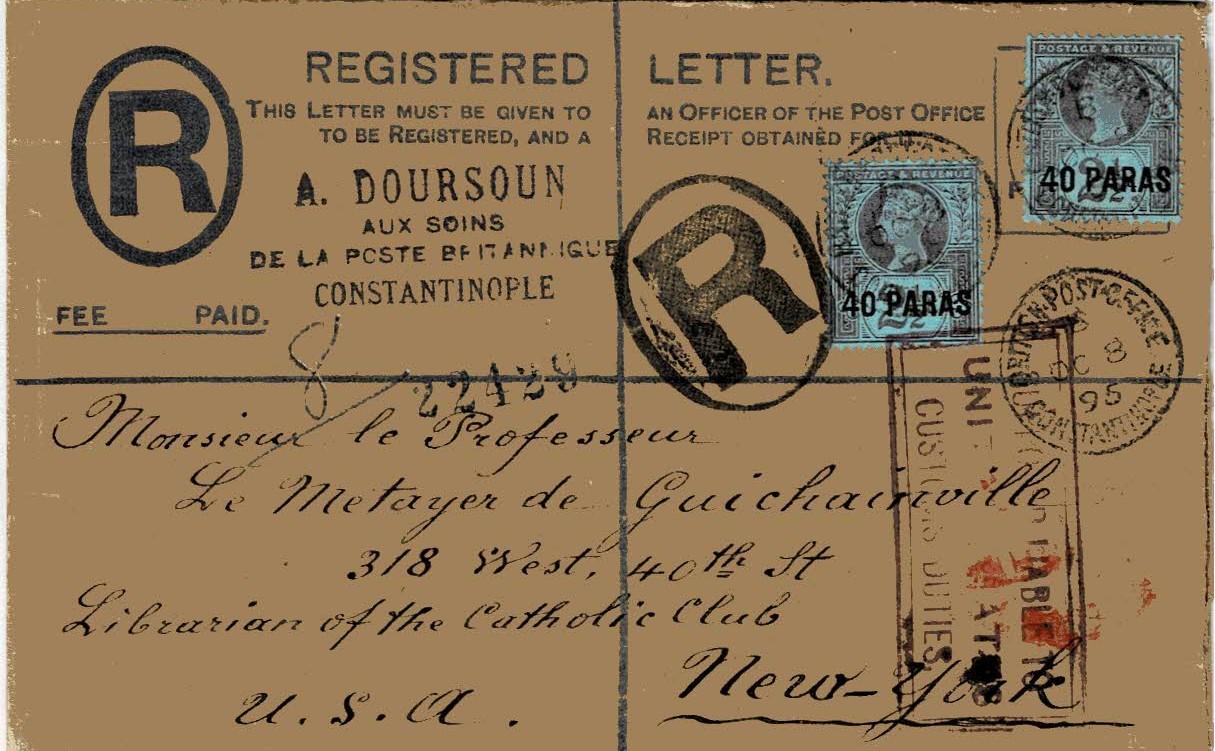 REGISTERED LETTER.
THIS LETTER MUST BE GIVEN TO AN OFFICER OF THE POST OFFICE
TO BE REGISTERED, AND A RECEIPT OBTAINED FOR
R
A. DOURSOUN
AUX SOINS
DE LA POSTE BRITANNIQUE
CONSTANTINOPLE
FEE PAID.
R
POSTAGE & REVENUE
40 PARAS
2½
POSTAGE & REVENUE
40 PARAS
2½
BRITISH POST OFFICE
OC 8
95
CONSTANTINOPLE
8
22429
Monsieur le Professeur
Le Metayer de Guichainville
318 West, 40th St
Librarian of the Catholic Club
New-York
U. S. A.
LIABLE TO
UNITED STATES
CUSTOMS DUTIES.